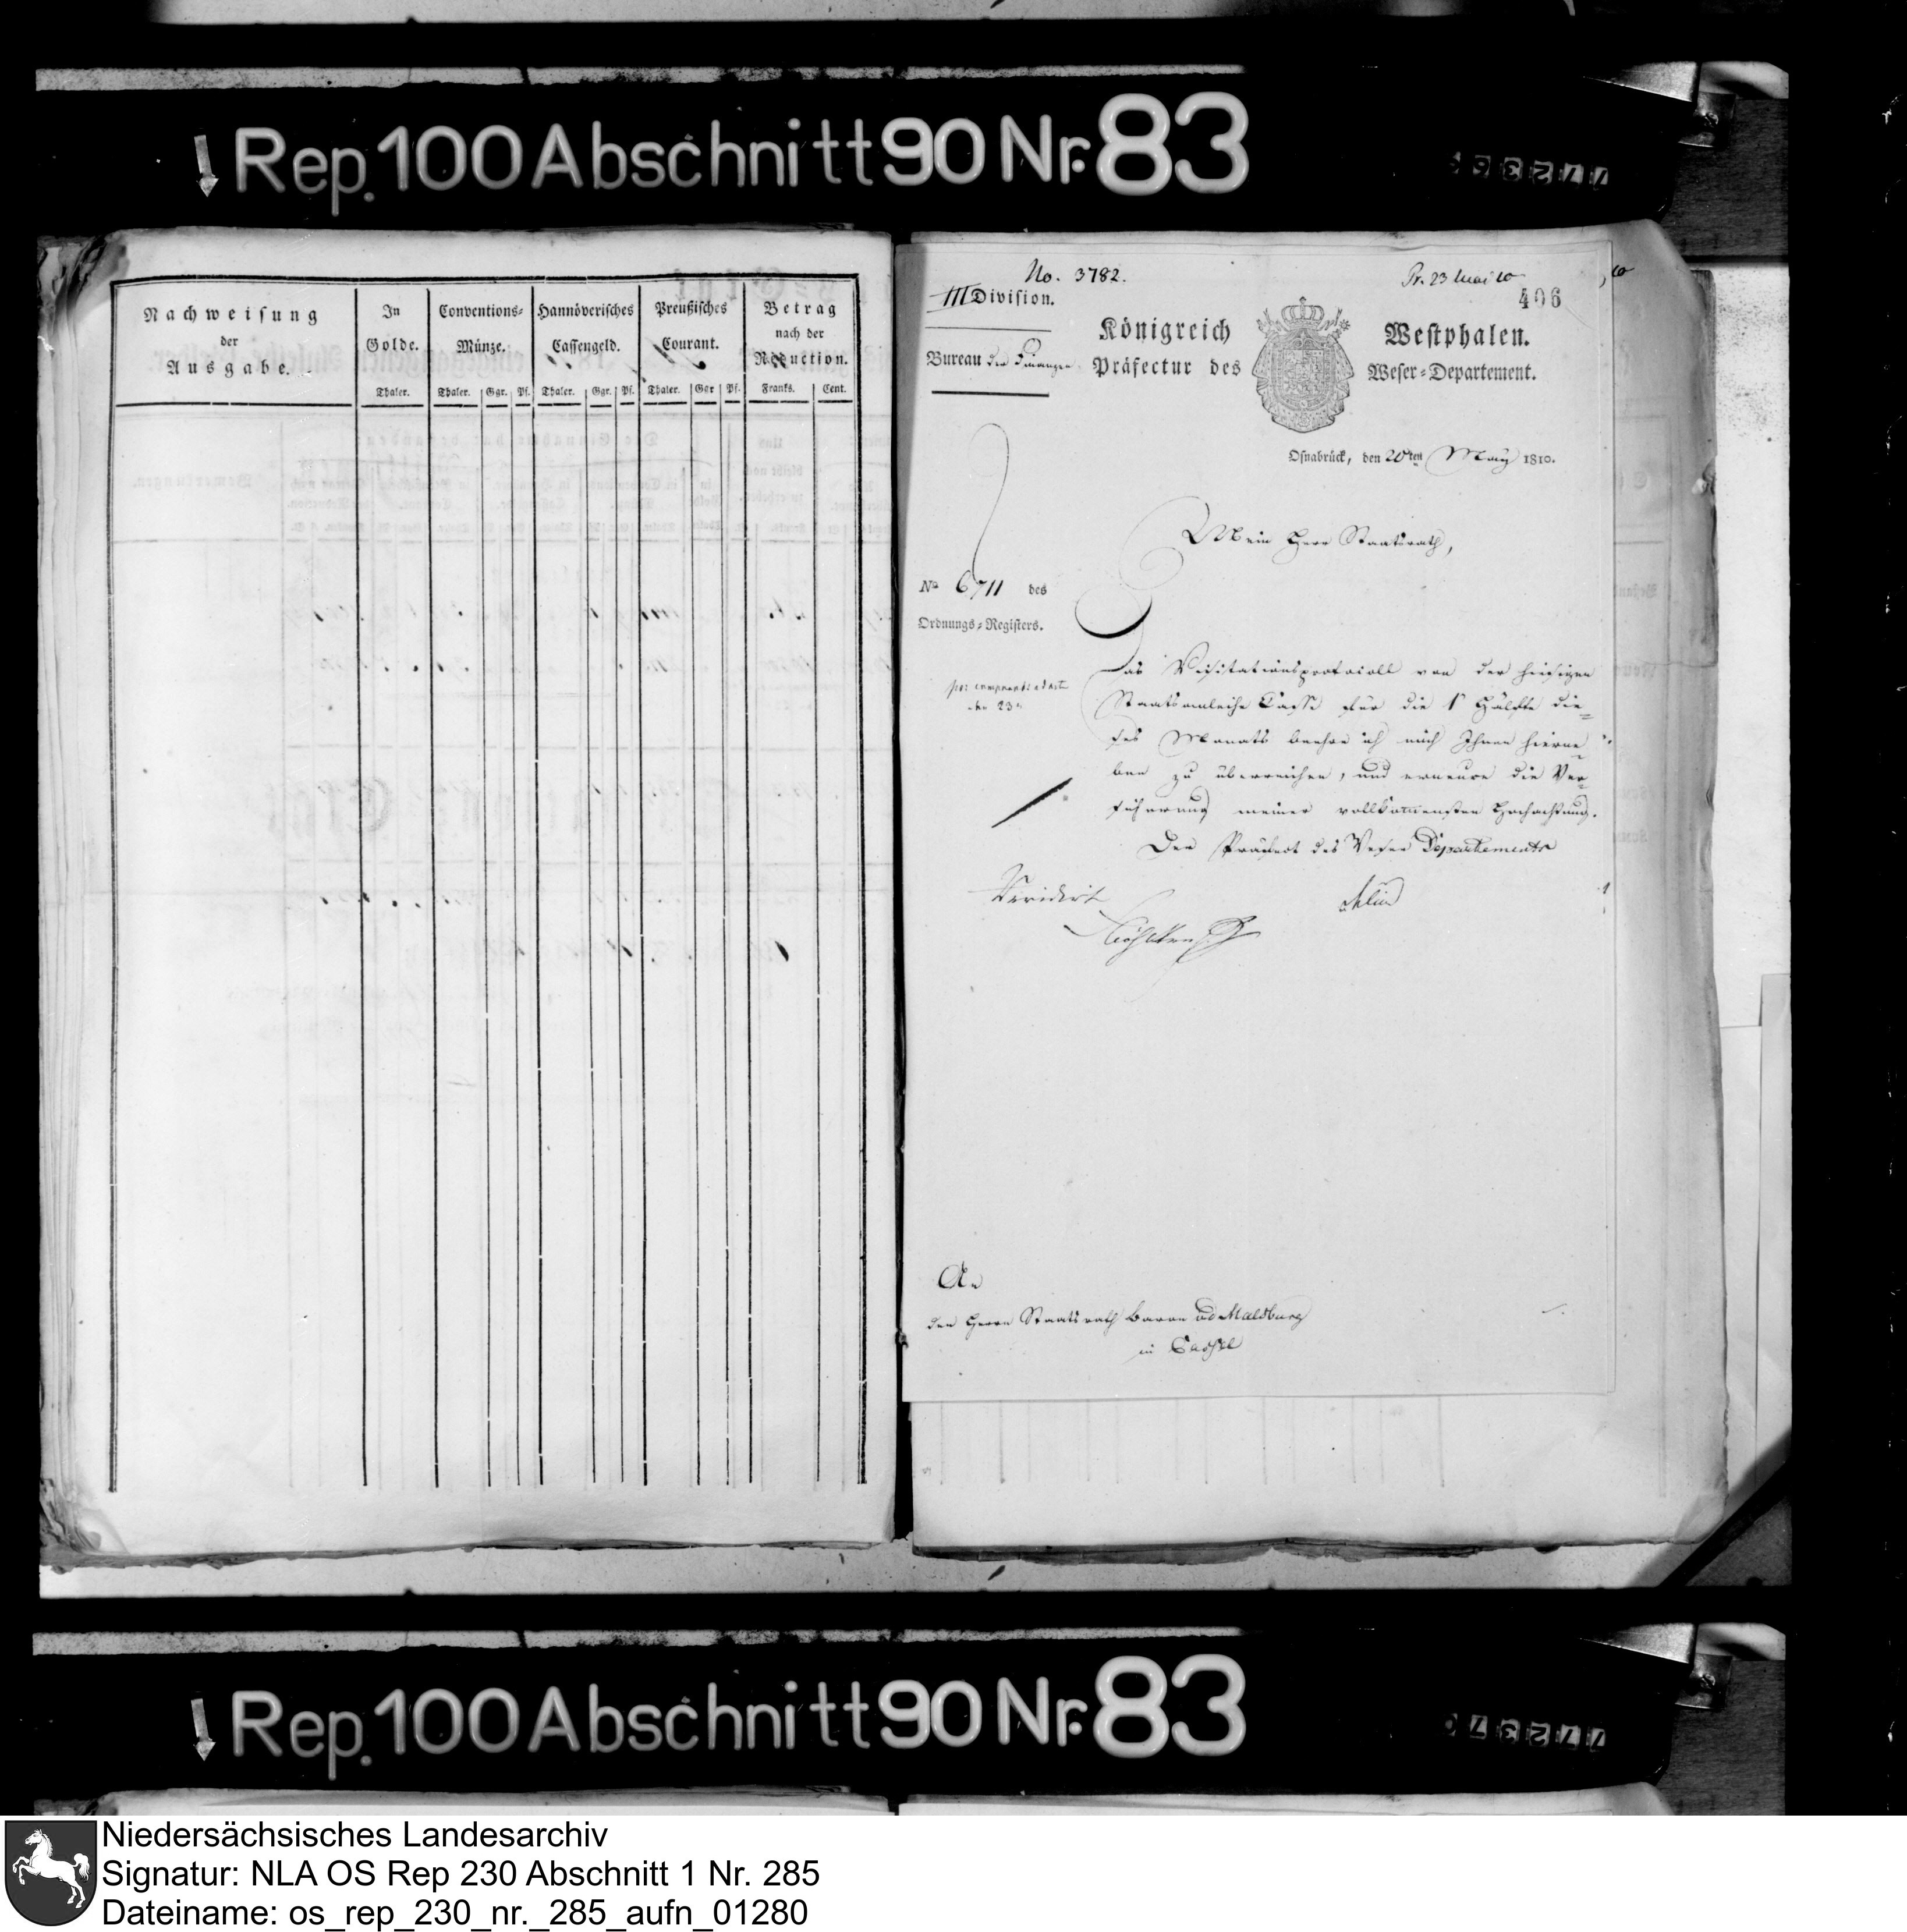 Rep. 100 Abschnitt 90 Nr. 83
77236
Nachweisung
der
Ausgabe.
In
Golde.
Thaler.
Conventions-
Münze.
Thaler. Ggr. Pf.
Hannöverisches
Cassengeld.
Thaler. Ggr. Pf.
Preußisches
Courant.
Thaler. Ggr Pf.
Betrag
nach der
Reduction.
Franks. Cent.
No. 3782.
Pr. 23 Mai 10
406
III Division.
Bureau der Finanzen
Königreich Westphalen.
Präfectur des Weser-Departement.
Osnabrück, den 20ten May 1810.
Mein Herr Staatsrath,
No 6711 des
Ordnungs-Registers.
Das Visitationsprotocoll von der hiesigen
Staatsanleihe Casse für die 1 Hälfte die-
ses Monats beehre ich mich Ihnen hierne-
ben zu überreichen, und erneure die Ver-
sicherung meiner vollkommensten Hochachtung.
Der Präfect des Weser Departements
An
den Herrn Staatsrath Baron v d Malsburg
in Cassel
Rep. 100 Abschnitt 90 Nr. 83
77237
Niedersächsisches Landesarchiv
Signatur: NLA OS Rep 230 Abschnitt 1 Nr. 285
Dateiname: os_rep_230_nr._285_aufn_01280